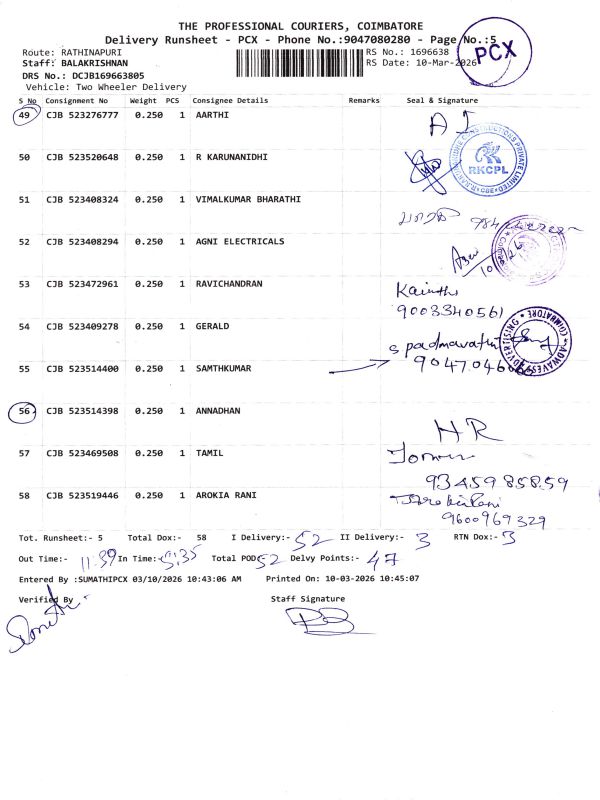 THE PROFESSIONAL COURIERS, COIMBATORE
Delivery Runsheet - PCX - Phone No.:9047080280 - Page No.:5
PCX
Route: RATHINAPURI
RS No.: 1696638
Staff: BALAKRISHNAN
RS Date: 10-Mar-2026
DRS No.: DCJB169663805
Vehicle: Two Wheeler Delivery
S No Consignment No Weight PCS Consignee Details Remarks Seal & Signature
49 CJB 523276777 0.250 1 AARTHI
50 CJB 523520648 0.250 1 R KARUNANIDHI
RKCPL
51 CJB 523408324 0.250 1 VIMALKUMAR BHARATHI
52 CJB 523408294 0.250 1 AGNI ELECTRICALS
53 CJB 523472961 0.250 1 RAVICHANDRAN
9003340561
54 CJB 523409278 0.250 1 GERALD
COIMBATORE
S padmavathi
55 CJB 523514400 0.250 1 SAMTHKUMAR
56 CJB 523514398 0.250 1 ANNADHAN
HR
57 CJB 523469508 0.250 1 TAMIL
9345985859
58 CJB 523519446 0.250 1 AROKIA RANI
9600969329
Tot. Runsheet:- 5 Total Dox:- 58 I Delivery:- 52 II Delivery:- 3 RTN Dox:- 3
Out Time:- 11:39 In Time:- 5:35 Total POD 52 Delvy Points:- 47
Entered By :SUMATHIPCX 03/10/2026 10:43:06 AM Printed On: 10-03-2026 10:45:07
Verified By Staff Signature